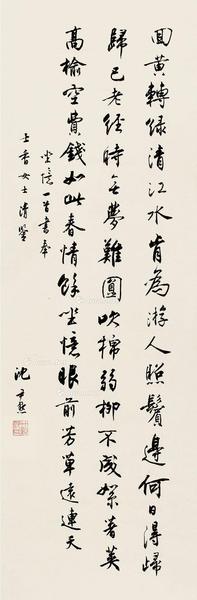 回黄轉緑清江水肯為游人照鬢邊何日得歸
歸已老經時無夢夢難圓吹棉弱柳不成絮著莢
高榆空費錢如此春情餘坐憶眼前芳草遠連天
坐憶一首書奉
士香女士清鑒
沈尹默